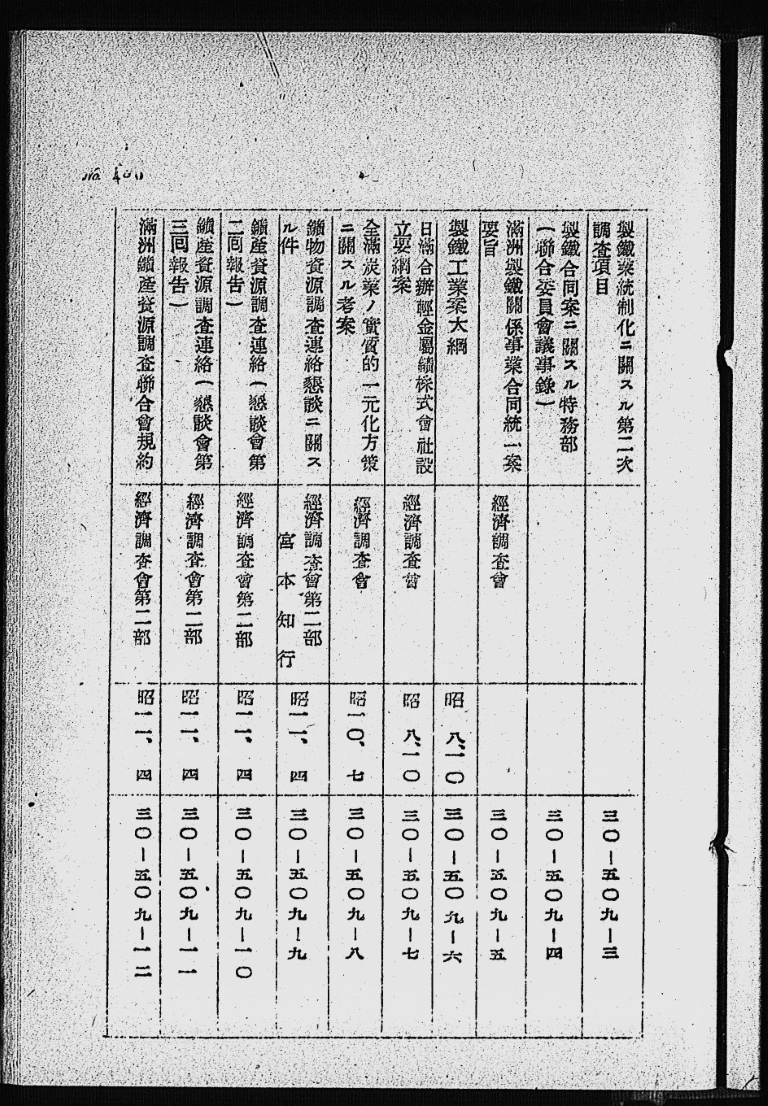 製鐵業統制化ニ關スル第二次
調査項目
三〇ー五〇九ー三
製鐵合同案ニ關スル特務部
(聯合委員會議事錄)
三〇ー五〇九ー四
滿洲製鐵關係事業合同統一案
要旨
經濟調査會
三〇ー五〇九ー五
製鐵工業案大綱
昭 八、一〇
三〇ー五〇九ー六
日滿合辦輕金屬績株式會社設
立要綱案
經濟調査會
昭 八、一〇
三〇ー五〇九ー七
全滿炭業ノ實質的一元化方策
ニ關スル考案
經濟調査會
昭一〇、七
三〇ー五〇九ー八
鑛物資源調査連絡懇談ニ關ス
ル件
經濟調査會第二部
宮本知行
昭一一、四
三〇ー五〇九ー九
鑛產資源調査連絡(懇談會第
二回報告)
經濟調査會第二部
昭一一、四
三〇ー五〇九ー一〇
鑛產資源調査連絡(懇談會第
三回報告)
經濟調査會第二部
昭一一、四
三〇ー五〇九ー一一
滿洲鑛產資源調査聯合會規約
經濟調査會第二部
昭一一、四
三〇ー五〇九ー一二